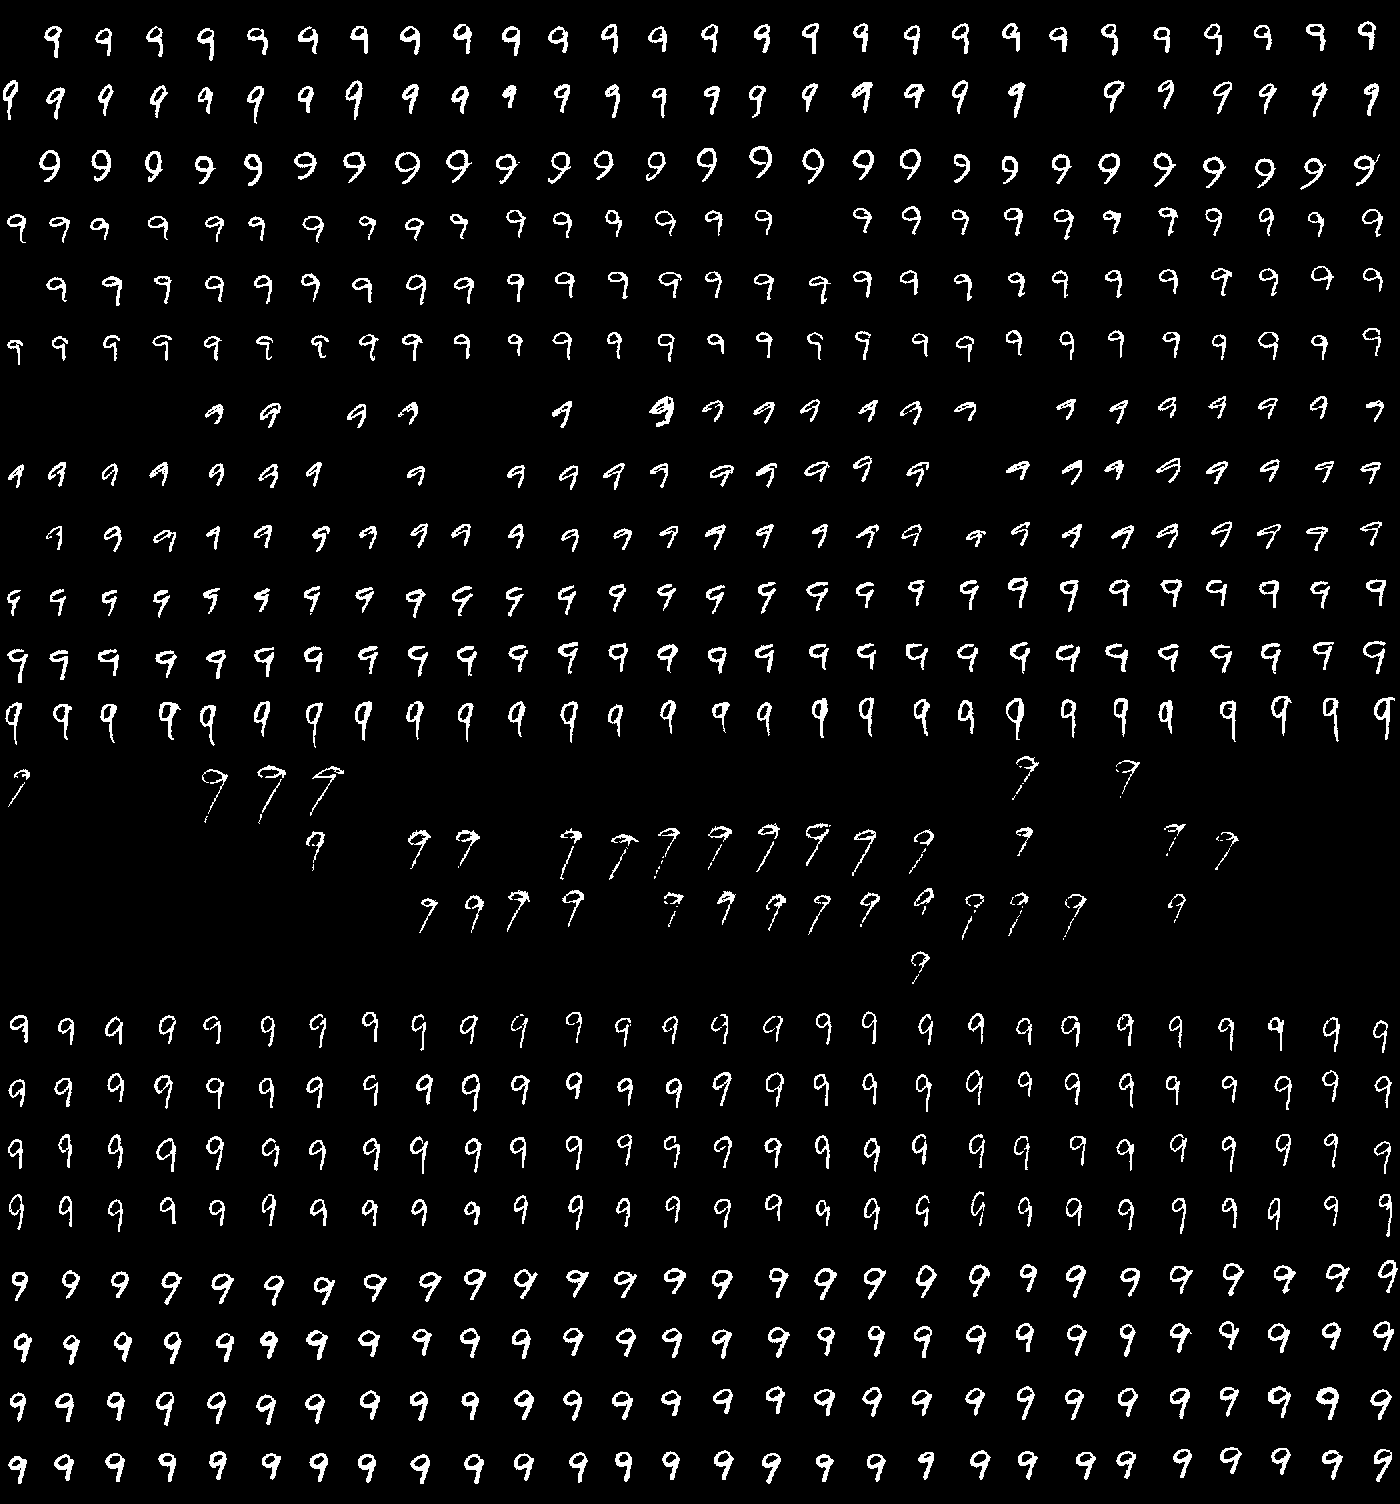 9 9 9 9 9 9 9 9 9 9 9 9 9 9 9 9 9 9 9 9 9 9 9 9 9 9 9
9 9 9 9 9 9 9 9 9 9 9 9 9 9 9 9 9 9 9 9 9 9 9 9 9 9 9
9 9 9 9 9 9 9 9 9 9 9 9 9 9 9 9 9 9 9 9 9 9 9 9 9 9 9
9 9 9 9 9 9 9 9 9 9 9 9 9 9 9 9 9 9 9 9 9 9 9 9 9 9 9
9 9 9 9 9 9 9 9 9 9 9 9 9 9 9 9 9 9 9 9 9 9 9 9 9 9 9
9 9 9 9 9 9 9 9 9 9 9 9 9 9 9 9 9 9 9 9 9 9 9 9 9 9 9 9
9 9 9 9 9 9 9 9 9 9 9 9 9 9 9 9 9 9 9
9 9 9 9 9 9 9 9 9 9 9 9 9 9 9 9 9 9 9 9 9 9 9 9 9
9 9 9 9 9 9 9 9 9 9 9 9 9 9 9 9 9 9 9 9 9 9 9 9 9 9 9
9 9 9 9 9 9 9 9 9 9 9 9 9 9 9 9 9 9 9 9 9 9 9 9 9 9 9 9
9 9 9 9 9 9 9 9 9 9 9 9 9 9 9 9 9 9 9 9 9 9 9 9 9 9 9 9
9 9 9 9 9 9 9 9 9 9 9 9 9 9 9 9 9 9 9 9 9 9 9 9 9 9 9 9
9 9 9 9 9 9
9 9 9 9 9 9 9 9 9 9 9 9 9 9
9 9 9 9 9 9 9 9 9 9 9 9 9 9
9
9 9 9 9 9 9 9 9 9 9 9 9 9 9 9 9 9 9 9 9 9 9 9 9 9 9 9 9
9 9 9 9 9 9 9 9 9 9 9 9 9 9 9 9 9 9 9 9 9 9 9 9 9 9 9 9
9 9 9 9 9 9 9 9 9 9 9 9 9 9 9 9 9 9 9 9 9 9 9 9 9 9 9 9
9 9 9 9 9 9 9 9 9 9 9 9 9 9 9 9 9 9 9 9 9 9 9 9 9 9 9 9
9 9 9 9 9 9 9 9 9 9 9 9 9 9 9 9 9 9 9 9 9 9 9 9 9 9 9 9
9 9 9 9 9 9 9 9 9 9 9 9 9 9 9 9 9 9 9 9 9 9 9 9 9 9 9 9
9 9 9 9 9 9 9 9 9 9 9 9 9 9 9 9 9 9 9 9 9 9 9 9 9 9 9 9
9 9 9 9 9 9 9 9 9 9 9 9 9 9 9 9 9 9 9 9 9 9 9 9 9 9 9 9